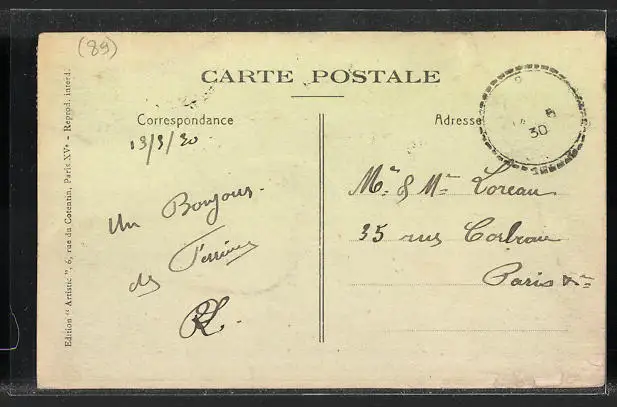 (89)
CARTE POSTALE
Correspondance
Adresse
13/5/30
5
30
Un Bonjour
des
Mr & Me Loreau
35 rue Corbeau
Paris Xe
RL.
Edition "Artistic", 6, rue du Cotentin, Paris XVe - Reprod. interd.